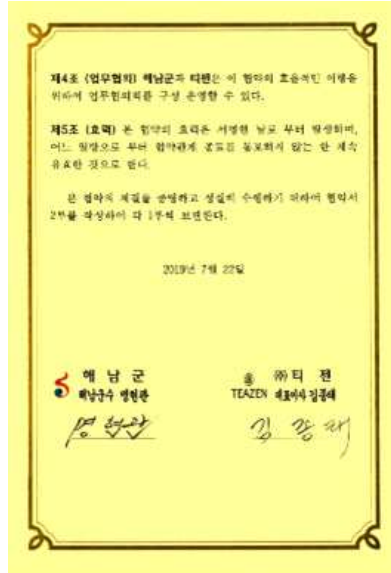 제4조 (업무협의) 해남군과 티젠은 이 협약의 효율적인 이행을
위하여 업무협의회를 구성 운영할 수 있다.
제5조 (효력) 본 협약의 효력은 서명한 날로 부터 발생하며,
어느 일방으로 부터 협약관계 종료를 통보하지 않는 한 계속
유효한 것으로 한다.
본 협약의 체결을 증명하고 성실히 수행하기 위하여 협약서
2부를 작성하여 각 1부씩 보관한다.
2019년 7월 22일
해남군
해남군수 명현관
명현관
㈜티젠
TEAZEN 대표이사 김종태
김종태